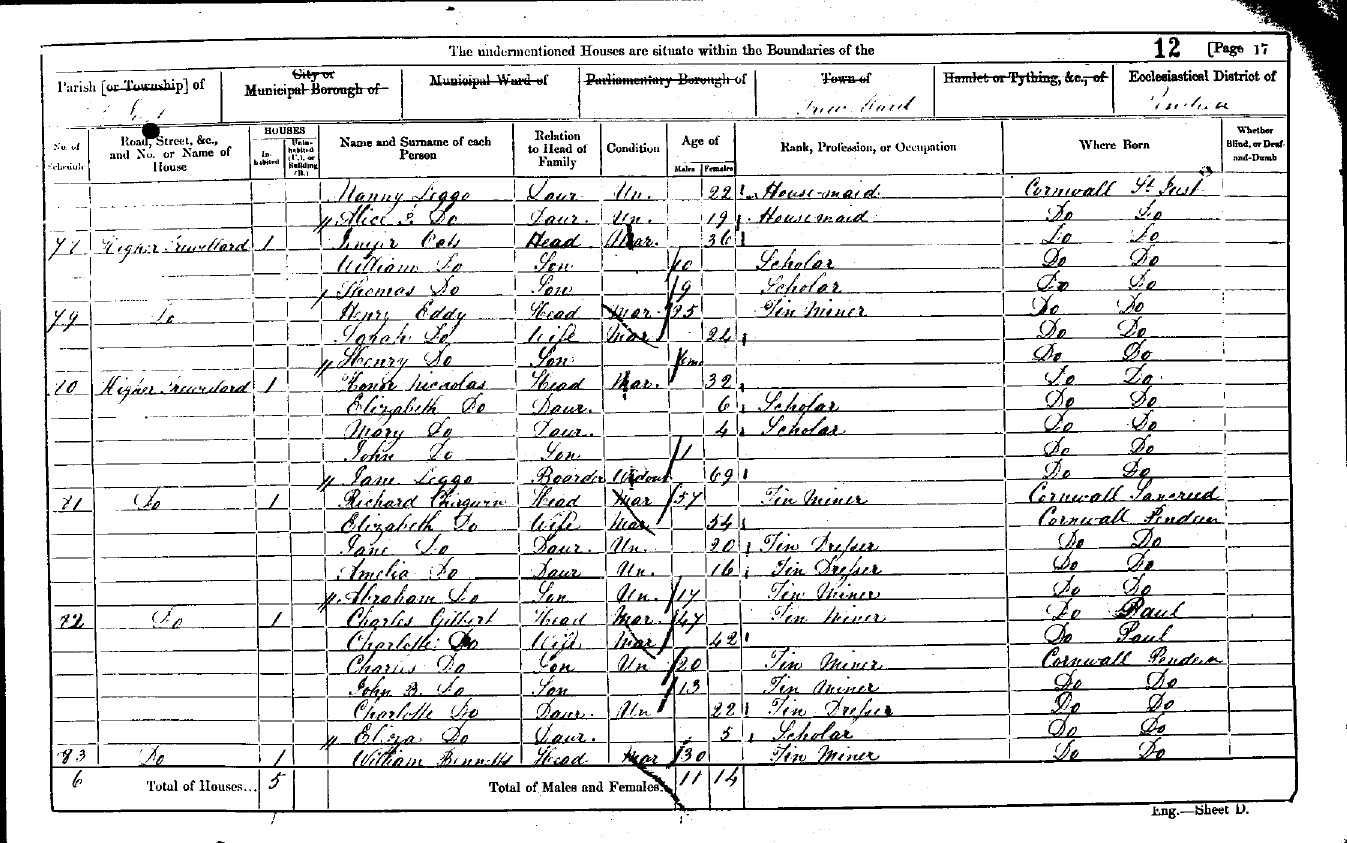 The undermentioned Houses are situate within the Boundaries of the 12 [Page 17
Parish [or Township] of City or Municipal Borough of Municipal Ward of Parliamentary Borough of Town of Hamlet or Tything, &c., of Ecclesiastical District of
Pendeen
No. of Schedule Road, Street, &c., and No. or Name of House HOUSES Inhabited Uninhabited (U.), or Building (B.) Name and Surname of each Person Relation to Head of Family Condition Age of Males Females Rank, Profession, or Occupation Where Born Whether Blind, or Deaf-and-Dumb
Nanny Leggo Daur Un. 22 House-maid Cornwall St Just
Alice Do Daur. Un. 19 Housemaid Do Do
Higher Trewellard 1 Oats Head Mar. 36 Do Do
William Do Son 10 Scholar Do Do
Thomas Do Son 9 Scholar Do Do
79 Do Henry Eddy Head Mar. 25 Tin Miner Do Do
Sarah Do Wife Mar. 24 Do Do
Henry Do Son Do Do
Higher Trewellard 1 Honor Nicholas Head Mar. 32 Do Do
Elizabeth Do Daur. 6 Scholar Do Do
Mary Do Daur. 4 Scholar Do Do
John Do Son 1 Do Do
Jane Leggo Boarder Widow 69 Do Do
81 Do 1 Richard Chirgwin Head Mar 57 Tin Miner Cornwall Sancreed
Elizabeth Do Wife Mar. 54 Cornwall Pendeen
Jane Do Daur. Un. 20 Tin Dresser Do Do
Amelia Do Daur Un. 16 Tin Dresser Do Do
Abraham Do Son Un. 17 Tin Miner Do Do
82 Do 1 Charles Gilbert Head Mar. 47 Tin Miner Do Paul
Charlotte Do Wife Mar 42 Do Paul
Charles Do Son Un 20 Tin Miner Cornwall Pendeen
John B. Do Son 13 Tin Miner Do Do
Charlotte Do Daur. Un 22 Tin Dresser Do Do
Eliza Do Daur. 5 Scholar Do Do
83 Do 1 William Bennetts Head Mar 30 Tin Miner Do Do
6 Total of Houses... 5 Total of Males and Females... 11 14
Eng.—Sheet D.